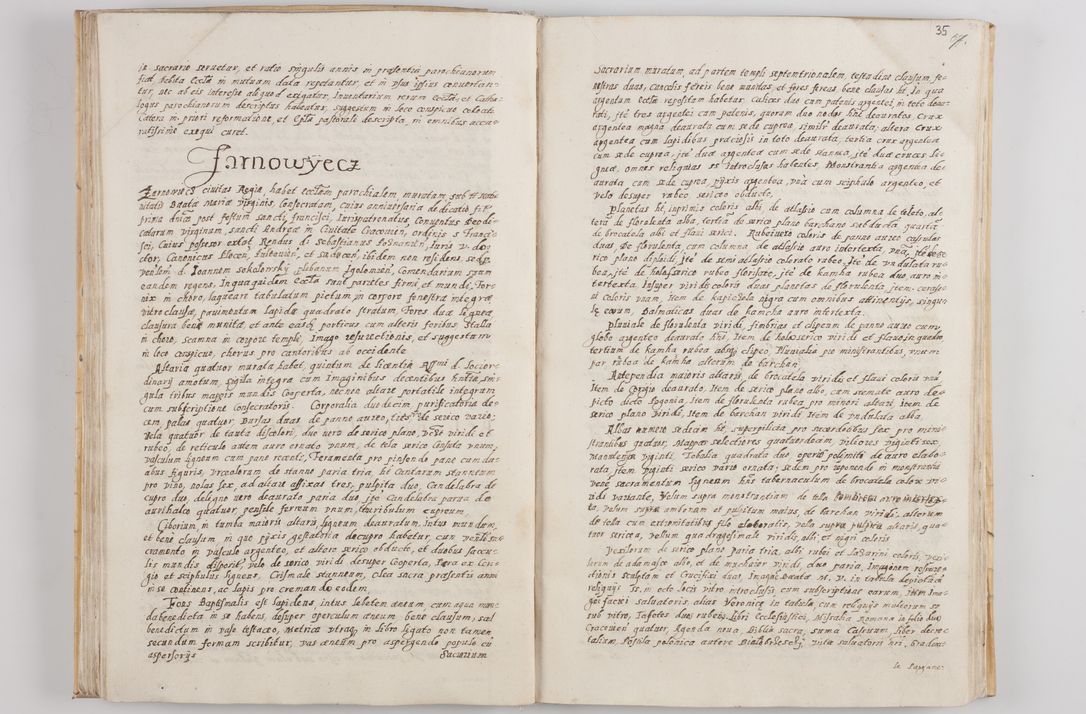 in sacrario seruetur, et ratio singulis annis in præsentia parochianorum
fiat debita Ecclæ in mutuam data repetantur, et in usus ipsius conuertan-
tur, nec ab eis interesse aliquod exigatur, Inuentarium rerum Ecclæ, et Catha-
logus parochianorum descriptus habeatur, suggestum in loco conspicuo colocet
Cætera in priori reformatione, et Epla pastorali descripta, in omnibus accu-
ratissime exequi curet.
Jarnowÿecz
Zarnowiecz ciuitas Regia, habet ecclam parochialem, muratam, sub tit. Natiui-
uitatis Beatæ Mariæ virginis, consecratam, cuius anniuersaria dedicatio fit
prima dnica post festum sancti francisci, Iurispatronatus Conuentus Deodi-
catarum virginum, sancti Andreæ in Ciuitate Cracouien, ordinis s. Francis-
sci, cuius possessor extat Rendus ds Sebastianus Iuris v. doc-
dor, Canonicus Plocen, Pultouien, et ibidem non residens, sed per
venlem d. Joannem Sokolowsky plebanum Igolomien, Comendarium suum
eandem regens. In qua quidem Eccla sunt parietes firmi, et mundi, For-
nix in choro, laqueare tabulatum pictum, in corpore fenestræ integræ
vitro clausæ, pauimentum lapide quadrato stratum, Fores duæ ligneæ
clausura bene munitæ, et ante easdem porticus cum alteris foribus, Stalla
in choro, scamna in corpore templi, Imago resurectionis, et suggestum
in loco conspicuo, chorus pro cantoribus ab occidente
Altaria quatuor murata habet, quintum de licentia Rssmi d. Loci or-
dinarij amotum, sigilla integra cum Imaginibus decentibus hntia, sin-
gula tribus mappis mundis Cooperta, nec non altare portatile integrum
cum subscriptione consecratoris. Corporalia duodecim, purificatoria de-
cem, pallas quatuor, bursas duas de panno aureo, tertiam de serico vario;
Vela quatuor de tauta discolori, duo vero de serico plano, vero viridi et
rubeo, de reticula autem auro ornato unum, de tela serico consuta unum,
vasculum ligneum cum pane recenti, Feramenta pro pinsendo pane cum du-
abus figuris, Vrceolorum de stanno paria tria, ite Cantarum stanneum
pro vino, nolas sex, ad altare affixas tres, pulpita duo, Candelabra de
cupro duo, de ligno vero deaurato paria duo, ite Candelabra parua de
aurihalco quatuor, pensile ferreum unum, thuribulum cupreum.
Ciborium, in tumba maioris altaris, ligneum deauratum, intus mundum,
et bene clausum, in quo pÿxis gestatoria de cupro habetur, cum venlimo
cramento in vasculo argenteo, et altero serico obducto, et duobus saccu-
lis mundis disposit, velo de serico viridi desuper Cooperta, Pera ex Cori-
gio et sciphulus ligneus. Crismale stanneum, olea sacra præsentis anni
in se continens, ac lapis pro cremando eodem,
Fons Baptismalis est lapideus, intus lebetem æneum, cum aqua mun-
da benedicta in se habens, desuper operculum æneum, bene clausum, sal
benedictum in vase testaceo, Metrica utraque in libro ligato non tamen
secundum formam scribitur, vas æneum pro aspergendo populo cum
aspersorÿs
Sacrarium
35
Sacrarium muratum, ad partem templi septemtrionalem testudine clausum, fe-
nestras duas, cancelis fereis bene munitas, et fores fereas bene clausas ht, In qua
argentum Ecclæ repositum habetur, Calices duo cum patenis argentei, in toto deau-
rati, ite tres argentei cum patenis, quorum duo nodos hnt deauratos, Crux
argentea magna, deaurata cum sede cuprea, similr deaurata; altera Crux
argentea cum lapidibus præciosis in toto deaurata, tertia crux argentea
cum sede cuprea, ite duæ argenteæ cum sede stannea, ite duæ cruces li-
gneæ, omnes reliquias in se introclusas habentes, Monstrantia argentea de-
aurata cum sede cuprea, pÿxis argentea, una cum sciphulo argenteo, et
velo desuper rubeo sericeo obducto,
Planetas ht, inprimis coloris albi, de atlasso cum columna de teleto, al-
tera de florulenta alba, tertia de serico plano barchano subducta, quarta
de brocatela albi et flaui serici. Rubei vero coloris de panno aureo casulas
duas de florulenta, cum columna de atlasio auro intertexta, una, ite de se-
rico plano diploidi, ite de semiatlasio colorato rubeo, ite de undulata ru-
bea, ite de holaserico rubeo florisato, ite de kamha rubea duo, auro in-
tertexta, Insuper viridis coloris duas planetas de florulenta, item cerasi-
ni coloris unam, item de kapicziola nigra cum omnibus attinentijs, singu-
læ earum, Dalmaticas duas de kamcha auro intertexta.
Pluuiale de florulenta viridi, fimbrias et clipeum de panno aureo cum
globo argenteo deaurato hns, Item de holoserico viridi et flauo in quadro
tertium de kamha rubea absque clipeo, Pluuialia pro ministrantibus, unum
par rubea de kamha, alterum de barchan.
Antependia maioris altaris, de brocatela viridis et flaui coloris unum
Item de Corigio deaurato, Item de serico plano albo, cum stemate auro de-
picto dicto Rogonia, item de florulenta rubea, pro minori altari item de
serico plano viridi, Item de barchan viridi item de undulata alba.
Albas numero sedecim ht, superpillicia pro sacerdotibus sex, pro mini-
strantibus quatuor, Mappas selectiores quatuordecim, viliores viginti sex,
Manutergia viginti. Tobalia quadrata duo operis polimiti de auro elabo-
rata, item viginti serico vario ornata; sedem pro reponendo in monstrantia
venle sacramentum ligneam hns tabernaculum de brocatela colore vi-
ridi variante, Velum supra monstrantiam de tela auro intertex-
ta, velum supra ambonem et pulpitum maius, de barchan viridi, alterum
de tela cum extremitatibus filo elaboratis, vela supra pulpita altaris, qua-
tuor sericea, vellum quadragesimale viridis, albi, et nigri coloris
Vexillorum de serico plano paria tria, albi, rubei et coloris, vexil-
lorum de adamasco albo, et de muchaier viridi, duo paria, Imaginem resurre-
ctionis sculptam et Crucifixi duas Imagines Beatæ M. V. in tabula depictam
reliquijs SS. in octo locis vitro introclusis, cum subscriptione earum, item Ima-
ginem faciei saluatoris, alias Veronicæ in tabula, cum reliquijs multorum ss.
sub vitro, Tapetes duo rubeos, libri Ecclesiastici, Missalia romana in folio duo
Cracouien quatuor, Agenda noua, Biblia sacra, summa Casuum, liber decre-
talium, Postila polonica autore Bialobrzeskj, vita saluatoris nri, Gradua-
le Pargame: